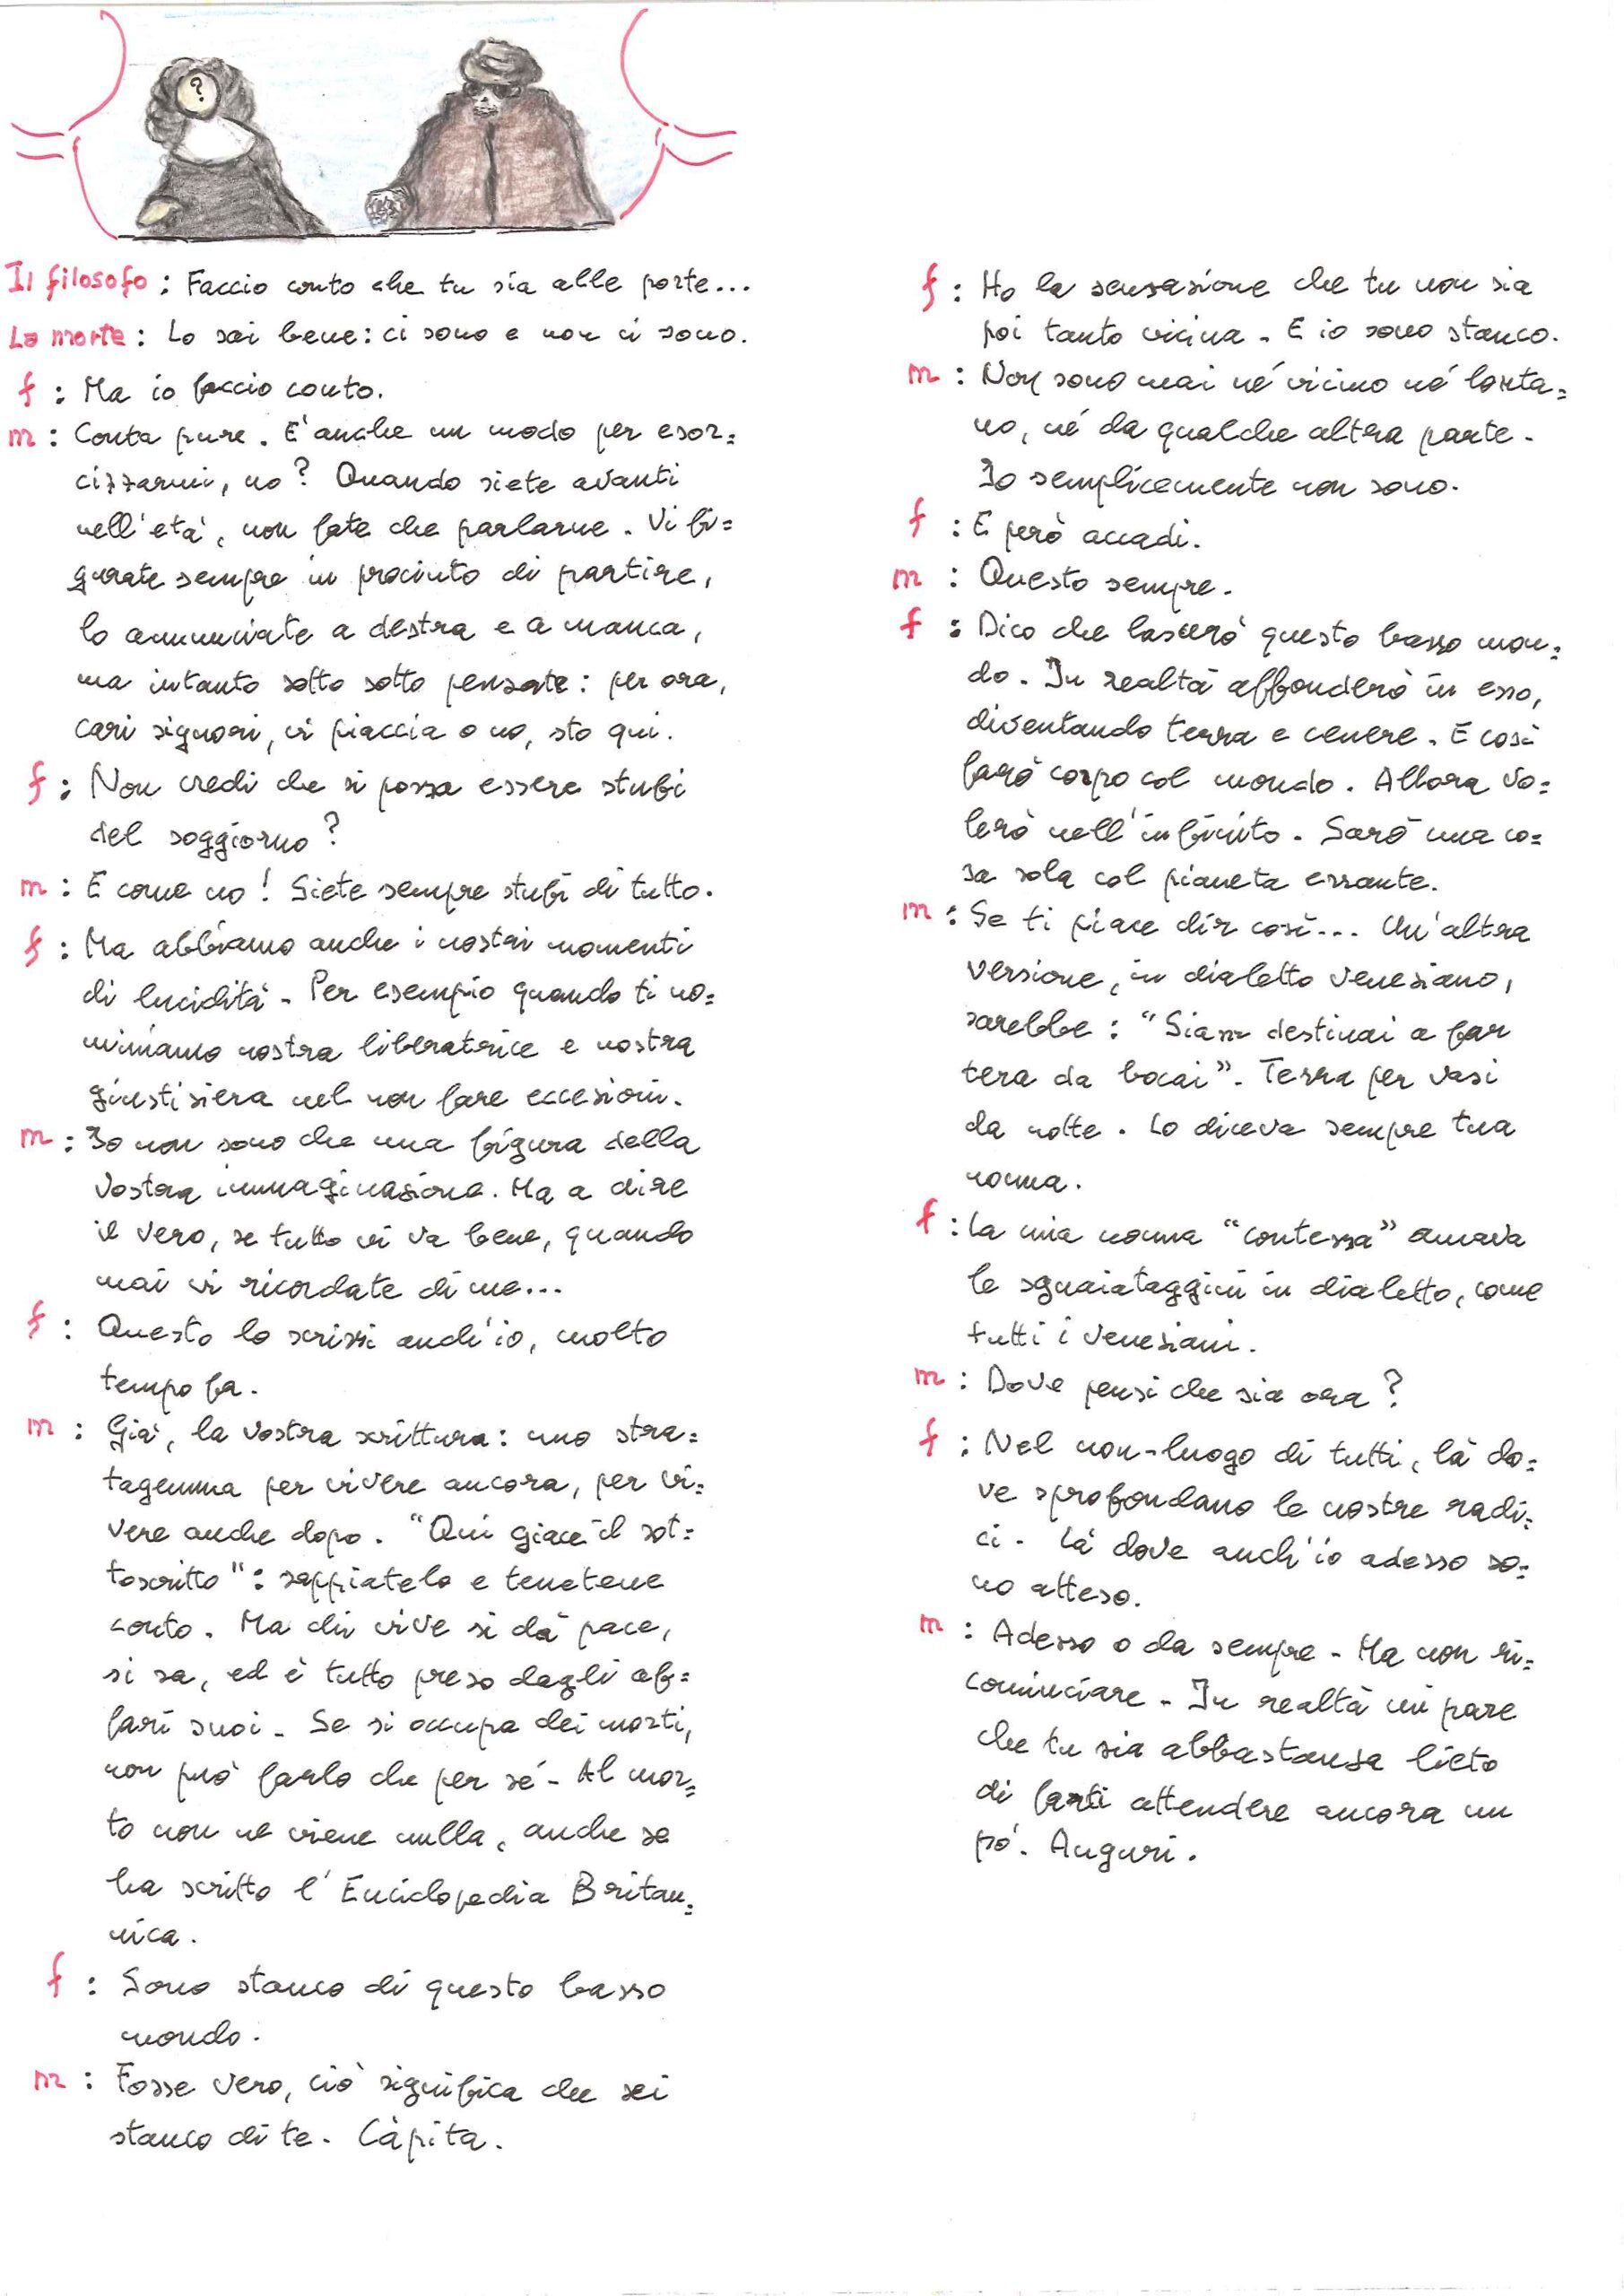 ?
Il filosofo : Faccio conto che tu sia alle porte...
La morte : Lo sai bene : ci sono e non ci sono.
f : Ma io faccio conto.
m : Conta pure. E' anche un modo per esor=
cizzarmi, no ? Quando siete avanti
nell'età, non fate che parlarne. Vi fi=
gurate sempre in procinto di partire,
lo annunciate a destra e a manca,
ma intanto sotto sotto pensate : per ora,
cari signori, vi piaccia o no, sto qui.
f : Non credi che si possa essere stufi
del soggiorno ?
m : E come no ! Siete sempre stufi di tutto.
f : Ma abbiamo anche i nostri momenti
di lucidità. Per esempio quando ti no=
miniamo nostra liberatrice e nostra
giustiziera nel non fare eccezioni.
m : Io non sono che una figura della
vostra immaginazione. Ma a dire
il vero, se tutto vi va bene, quando
mai vi ricordate di me...
f : Questo lo scrissi anch'io, molto
tempo fa.
m : Già, la vostra scrittura : uno stra=
tagemma per vivere ancora, per vi=
vere anche dopo. "Qui giace il sot=
toscritto" : sappiatelo e tenetene
conto. Ma chi vive si dà pace,
si sa, ed è tutto preso dagli af=
fari suoi. Se si occupa dei morti,
non può farlo che per sé. Al mor=
to non ne viene nulla, anche se
ha scritto l'Enciclopedia Britan=
nica.
f : Sono stanco di questo basso
mondo.
m : Fosse vero, ciò significa che sei
stanco di te. Càpita.
f : Ho la sensazione che tu non sia
poi tanto vicina. E io sono stanco.
m : Non sono mai né vicino né lonta=
no, né da qualche altra parte.
Io semplicemente non sono.
f : E però accadi.
m : Questo sempre.
f : Dico che lascerò questo basso mon=
do. In realtà affonderò in esso,
diventando terra e cenere. E così
farò corpo col mondo. Allora vo=
lerò nell'infinito. Sarò una co=
sa sola col pianeta errante.
m : Se ti piace dir così... Un'altra
versione, in dialetto veneziano,
sarebbe : "Siam destinai a far
tera da bocai". Terra per vasi
da notte. Lo diceva sempre tua
nonna.
f : La mia nonna "contessa" amava
le sguaiataggini in dialetto, come
tutti i veneziani.
m : Dove pensi che sia ora ?
f : Nel non-luogo di tutti, là do=
ve sprofondano le nostre radi=
ci. Là dove anch'io adesso so=
no atteso.
m : Adesso o da sempre. Ma non ri=
cominciare. In realtà mi pare
che tu sia abbastanza lieto
di farti attendere ancora un
po'. Auguri.